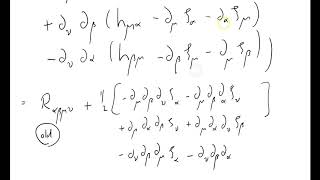 + ∂ν ∂β (hμα - ∂μ ξα - ∂α ξμ)
- ∂ν ∂α (hβμ - ∂β ξμ - ∂μ ξβ)
= Rαβμν + 1/2 [ - ∂μ ∂β ∂ν ξα - ∂μ ∂β ∂α ξν ]
old + ∂μ ∂α ∂β ξν + ∂μ ∂α ∂ν ξβ
- ∂ν ∂β ∂μ ξα - ∂ν ∂β ∂α